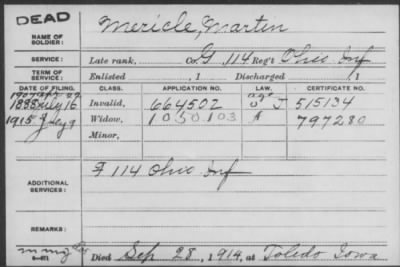 DEAD
NAME OF SOLDIER: Mericle, Martin
SERVICE: Late rank, Co G, 114 Reg't Ohio Inf
TERM OF SERVICE: Enlisted , 1 Discharged , 1
DATE OF FILING. CLASS. APPLICATION NO. LAW. CERTIFICATE NO.
1888 July 16 Invalid, 664502 J 515134
1915 Widow, 1050103 797280
Minor,
ADDITIONAL SERVICES: F 114 Ohio Inf
REMARKS:
Died Sep 28, 1914, at Toledo Iowa